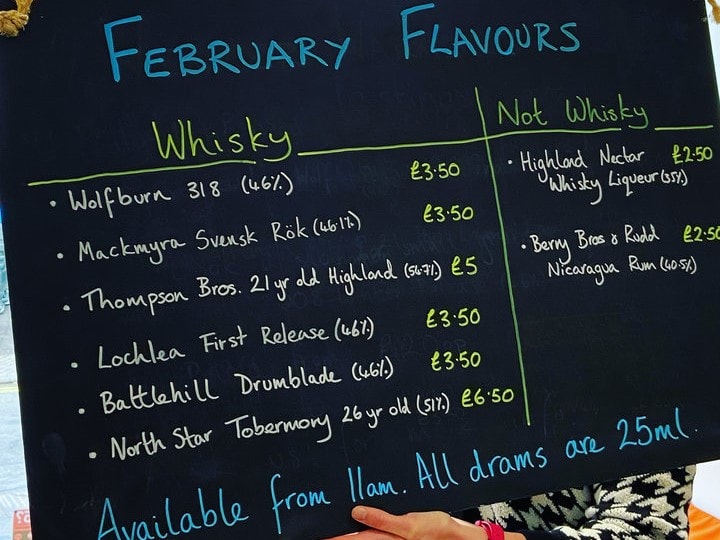 FEBRUARY FLAVOURS
Whisky
• Wolfburn 318 (46%) £3.50
• Mackmyra Svensk Rök (46.1%) £3.50
• Thompson Bros. 21 yr old Highland (56.7%) £5
• Lochlea First Release (46%) £3.50
• Battlehill Drumblade (46%) £3.50
• North Star Tobermory 26 yr old (51%) £6.50
Not Whisky
• Highland Nectar £2.50
Whisky Liqueur (35%)
• Berry Bros & Rudd £2.50
Nicaragua Rum (40.5%)
Available from 11am. All drams are 25ml.